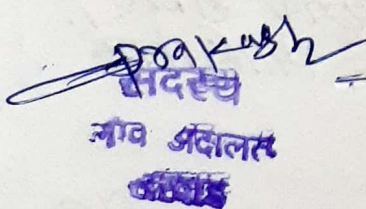 Prakash
सदस्य
गांव अदालत